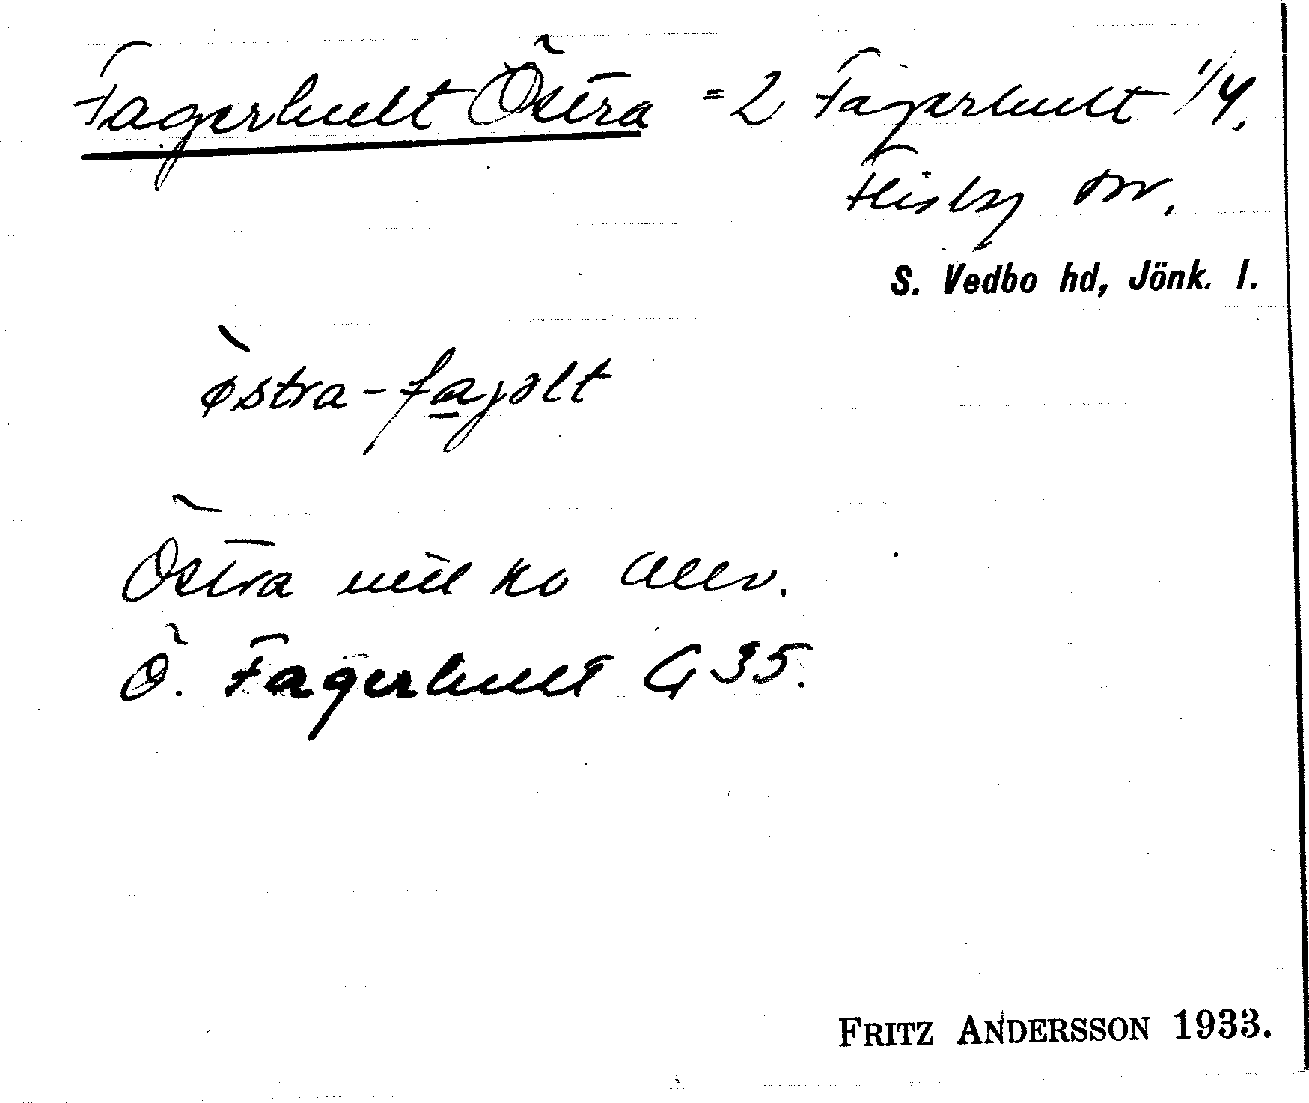 Fagerhult Östra = 2 Fagerhult 1/4,
Flisby sn.
S. Vedbo hd, Jönk. l.
ò̀stra-fajəlt
Östra
Ö. Fagerhult G 35.
FRITZ ANDERSSON 1933.